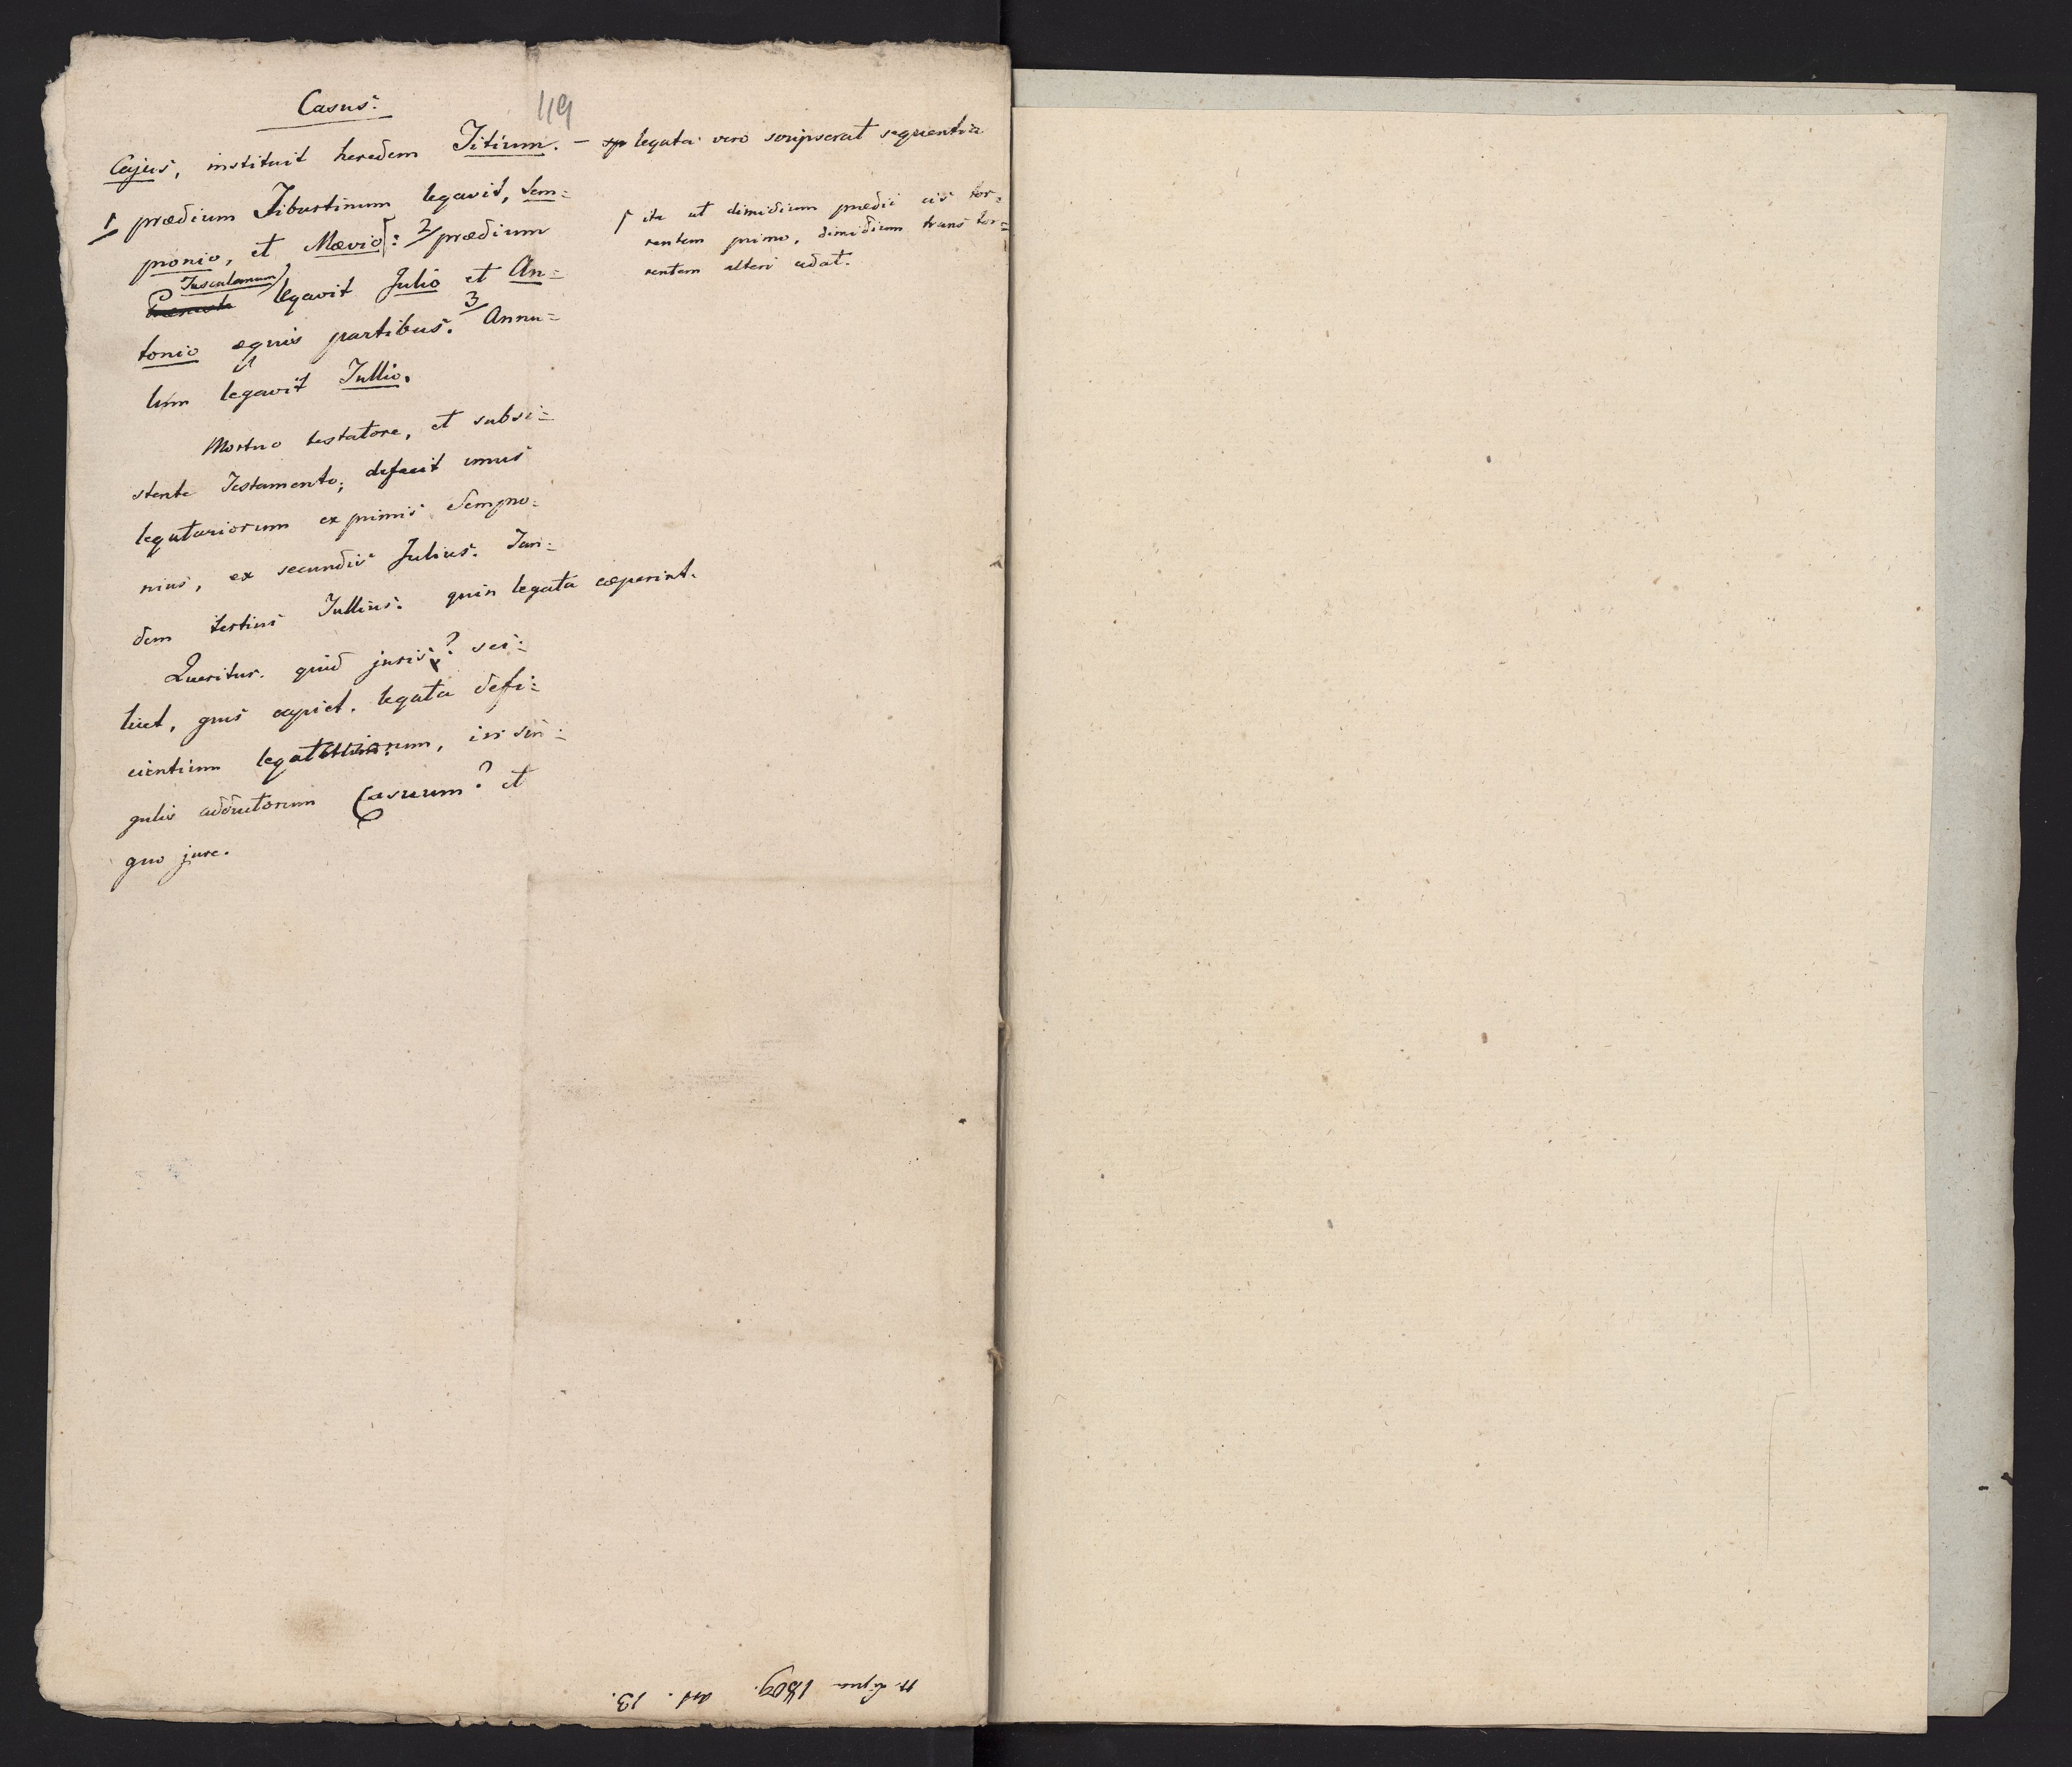 119
Casus.
Cajus, instituit heredem Titium. — legata vero scripserat sequentia
1 prædium Tiburtinum legavit, Sem=
pronio, et Mævio: 2 prædium
Tusculanum
legavit Julio et An=
tonio æquis partibus. 3 Annu=
lum legavit Tullio.
ita ut dimidium prædii cis tor=
rentem primo, dimidium trans tor=
rentem alteri cedat.
Mortuo testatore, et subsi=
stente Testamento; defecit unus
legatariorum ex primis Sempro=
nius, ex secundis Julius. Tan=
dem tertius Tullius. quin legata ceperint.
Quæritur. quid juris? sci=
licet, quis capiet. legata defi=
cientium legatariorum, in sin=
gulis adductorum Casuum? et
quo jure.
1809. 13.